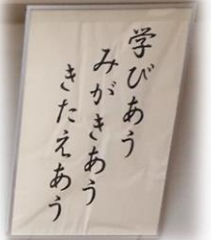 学びあう
みがきあう
きたえあう